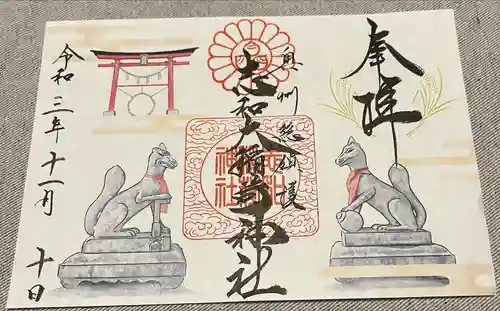 奉拝
奥州総鎮護
志和大稲荷神社
令和三年十一月十日